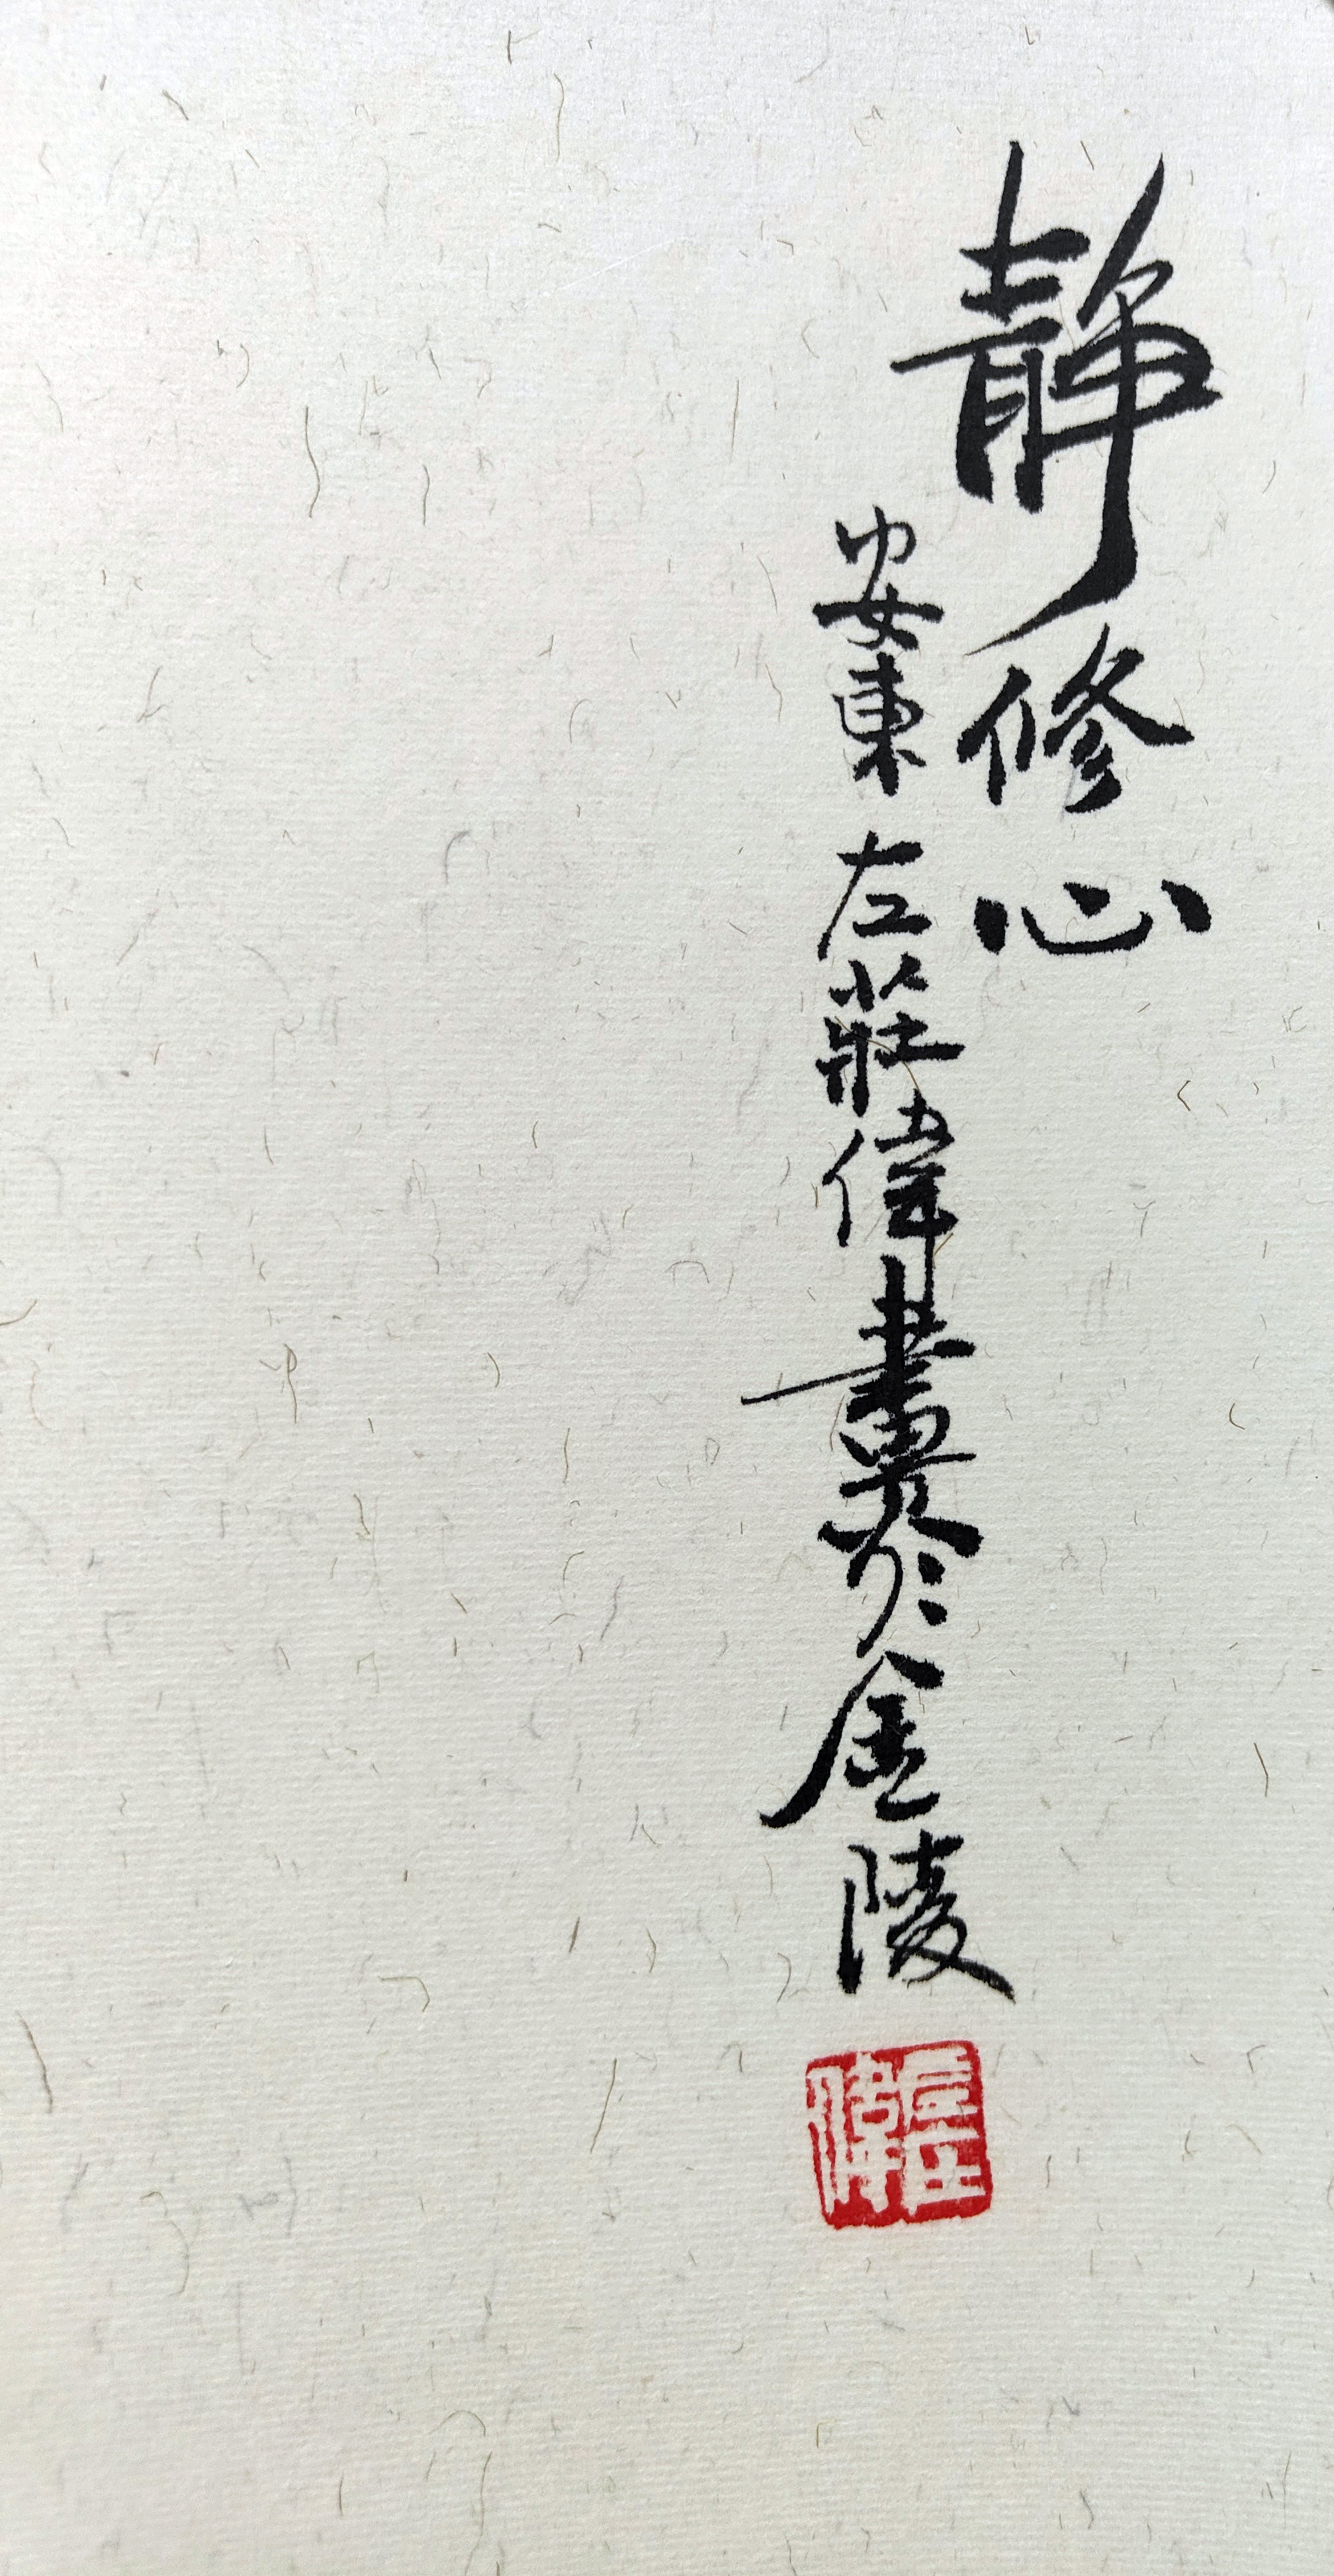 靜修心
安東左莊偉畫於金陵
左莊偉